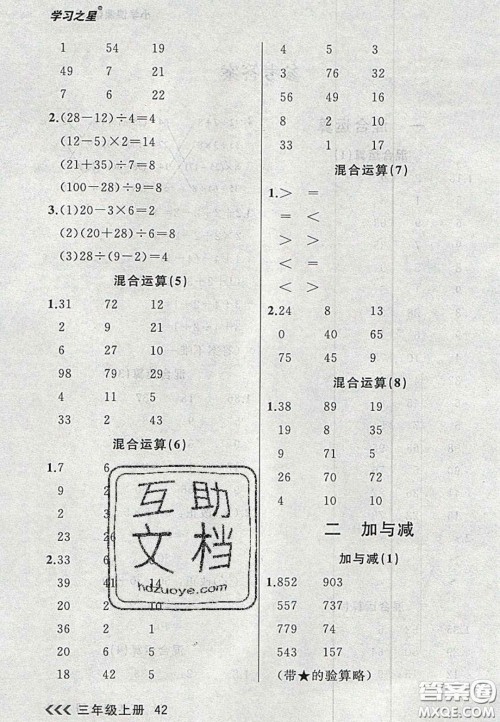 学习之星®
1 54 19
49 7 21
7 71 76
2.(28－12)÷4=4
(12－5)×2=14
(21+35)÷7=8
(100－28)÷9=8
3.(1)20－3×6=2
(2)(20+28)÷6=8
(3)28÷(9－2)=4
混合运算(5)
1.31 72 12
2 9 21
6 27 10
98 79 29
4 11 5
33 2 43
混合运算(6)
1.7 6
9 2
2
20
2.33 6
39 41 14
20 2 10
36 2 1
20 6 0
18 42 5
4 5 3
3 76 32
56 49 16
8 2 10
33 1 17
混合运算(7)
1.> =
= <
> >
< >
< =
2.24 8 13
0 40 65
75 45 9
混合运算(8)
1.38 89 19
14 8 35
9 71 5
26 70 72
4 10 10
二 加与减
加与减(1)
1.852 903
557 737
779 74
543 157
(带★的验算略)
互助文档
hdzuoye.com
<<< 三年级上册 42
答案圈
MXQE.COM